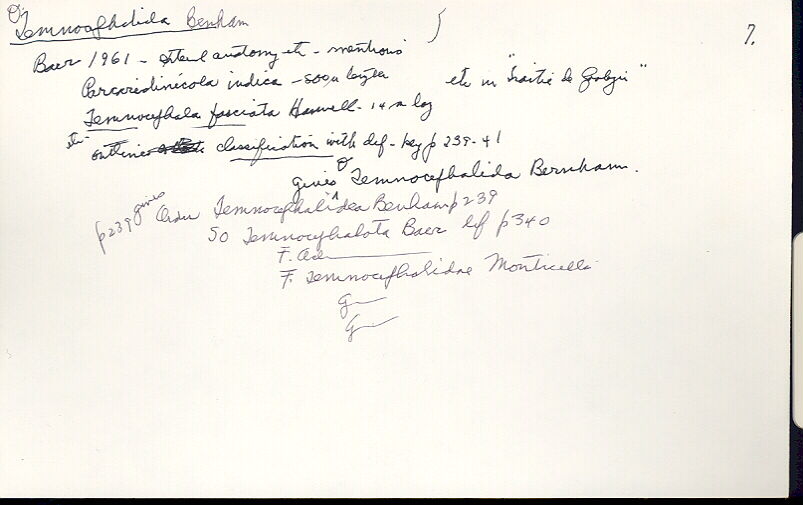 O. Temnocephalida Benham
7.
Baer 1961 - external anatomy etc - mentions
Parcaridinicola indica - 500µ length etc in "Traité de Zoologie"
Temnocephala fasciata Haswell - 14 m long
etc- outlines classification with def - key p 239-41
gives O Temnocephalida Bernham.
p239 gives Order Temnocephalidea Benham p 239
SO Temnocephalota Baer def p340
F.
F. Temnocephalidae Monticelli
G
G